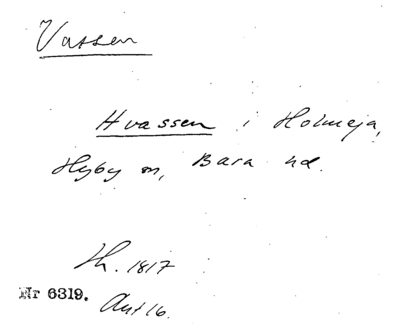 Vassen
Hvassen i Holmeja,
Hyby sn, Bara hd.
Th. 1817
Nr 6319.
Ant 16.